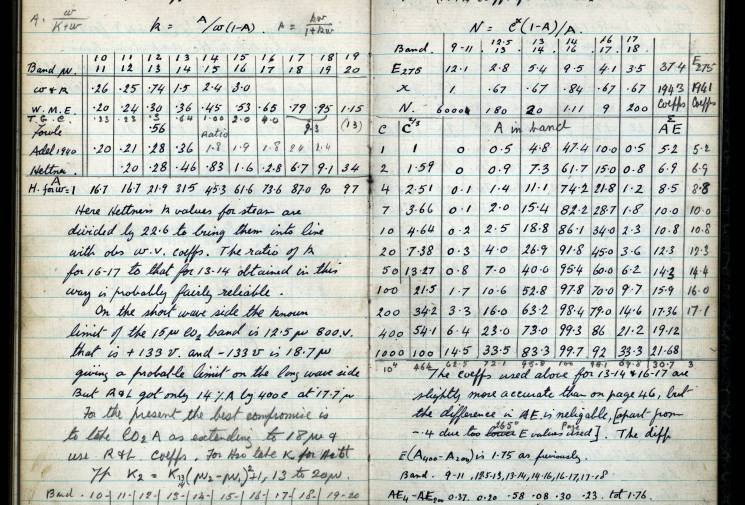 A = w/K+w   k = A/w(1-A)   A = kw/1+kw
10 11 12 13 14 15 16 17 18 19
Band μ. 11 12 13 14 15 16 17 18 19 20
w & R .26 .25 .74 1.5 2.4 3.0
W. M. E. .20 .24 .30 .36 .45 .53 .65 .79 .95 1.15
T. G. C. .23 .23 .3 .64 1.00 2.0 4.0 (13)
Fowle .56 Ratio 9.3
Adel 1940 .20 .21 .28 .36 1.8 1.9 1.8 24 2.4
Hettner .20 .28 .46 .83 1.6 2.8 6.7 9.1 34
A
H. for w=1 16.7 16.7 21.9 31.5 45.3 61.6 73.6 87.0 90 97
Here Hettners k values for steam are
divided by 22.6 to bring them into line
with obs w.v. coeffs. The ratio of k
for 16-17 to that for 13-14 obtained in this
way is probably fairly reliable.
On the short wave side the known
limit of the 15μ CO2 band is 12.5μ 800.ν.
that is +133 ν. and -133 ν is 18.7μ
giving a probable limit on the long wave side
But R&L got only 14 % A by 400c at 17.7μ
For the present the best compromise is
to take CO2 A as extending to 18μ &
use R & L Coeffs. For H2O take K for
K2 = K13(μ2-μ1)²+1, 13 to 20μ.
Band . 10- 11- 12- 13- 14- 15- 16- 17- 18- 19-20
N = cˣ(1-A)/A.
Band. 9-11 12.5 13 13 14 14 16 16 17 17 18.
E278 12.1 2.8 5.4 9.5 4.1 3.5 37.4 E275
x 1 .67 .67 .84 .67 .67 1943 1941
N. 6000 180 20 1.11 9 200 Coeffs Coeffs
C C⅔ A in band Σ AE
1 1 0 0.5 4.8 47.4 10.0 0.5 5.2 5.2
2 1.59 0 0.9 7.3 61.7 15.0 0.8 6.9 6.9
4 2.51 0.1 1.4 11.1 74.2 21.8 1.2 8.5 8.8
7 3.66 0.1 2.0 15.4 82.2 28.7 1.8 10.0 10.0
10 4.64 0.2 2.5 18.8 86.1 34.0 2.3 10.8 10.8
20 7.38 0.3 4.0 26.9 91.8 45.0 3.6 12.3 12.3
50 13.27 0.8 7.0 40.0 95.4 60.0 6.2 14.3 14.4
100 21.5 1.7 10.6 52.8 97.8 70.0 9.7 15.9 16.0
200 34.2 3.3 16.0 63.2 98.4 79.0 14.6 17.36 17.1
400 54.1 6.4 23.0 73.0 99.3 86 21.2 19.12
1000 100 14.5 33.5 83.3 99.7 92 33.3 21.68
10⁴ 464 62.5 72.1 100 30.7
The coeffs used above for 13-14 & 16-17 are
slightly more accurate than on page 46, but
the difference in AE is negligable, [apart from
-.4 due to 265° E values used]. The diff
E(A400-A200) is 1.75 as previously.
Band. 9-11, 12.5-13, 13-14, 14-16, 16-17, 17-18
AE4-AE2 0.37. 0.20 .58 .08 .30 .23. tot 1.76.